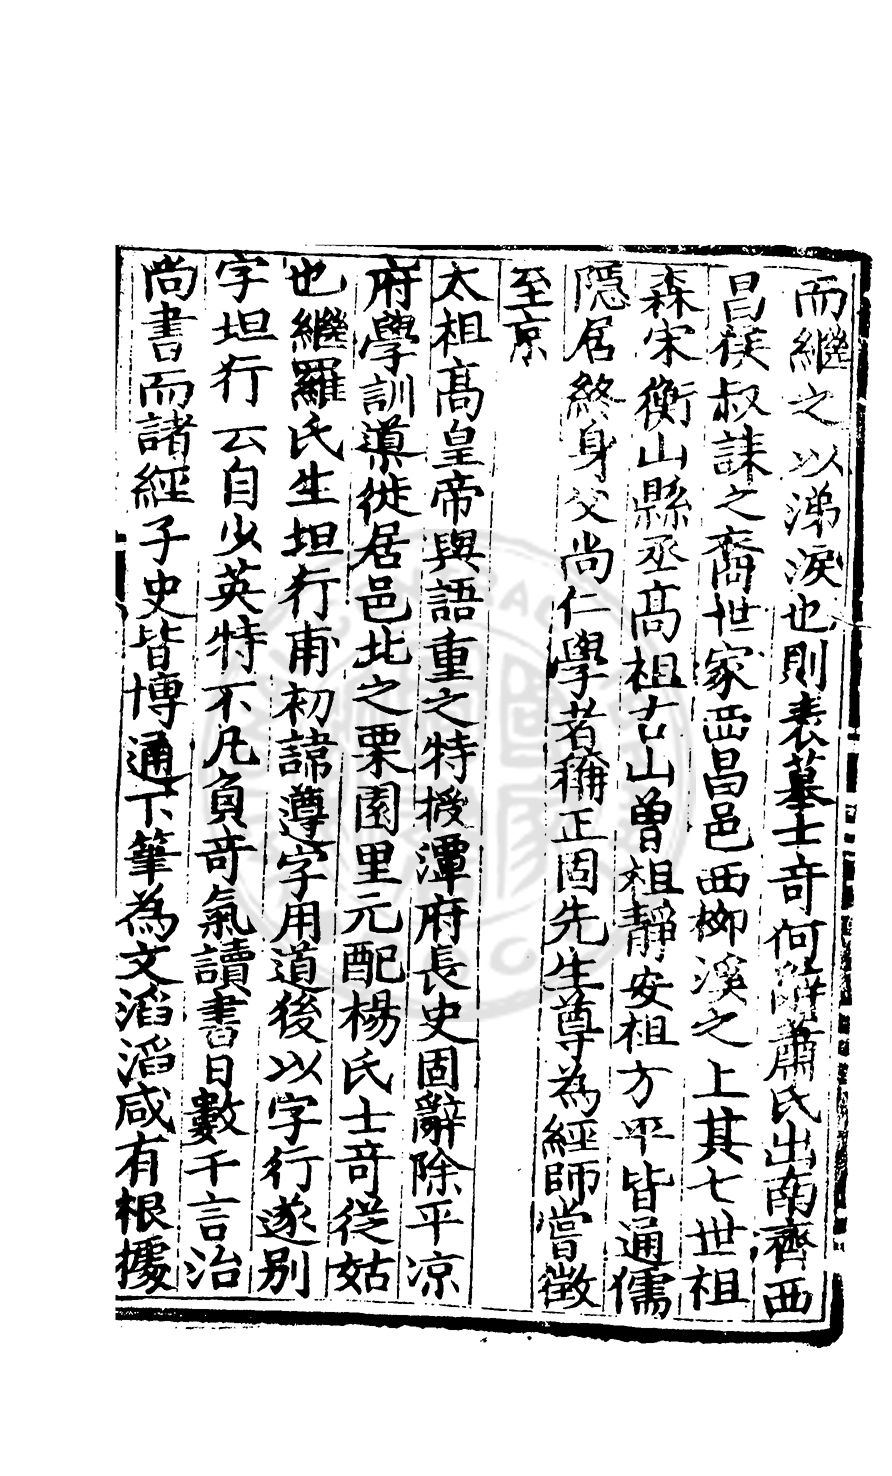 而繼之以涕淚也則表墓士竒何辭蕭氏出南齊西
昌侯叔誄之裔世家西昌邑西栁溪之上其七世祖
森宋衡山縣丞髙祖古山曽祖靜安祖方平皆通儒
隠居終身父尚仁學者稱正固先生尊為經師嘗徵
至京
太祖髙皇帝與語重之特授潭府長史固辭除平凉
府學訓導徙居邑北之栗園里元配楊氏士竒從姑
也繼羅氏生坦行甫初諱遵字用道後以字行遂别
字坦行云自少英特不凡負竒氣讀書日數千言治
尚書而諸經子史皆博通下筆為文滔滔咸有根據